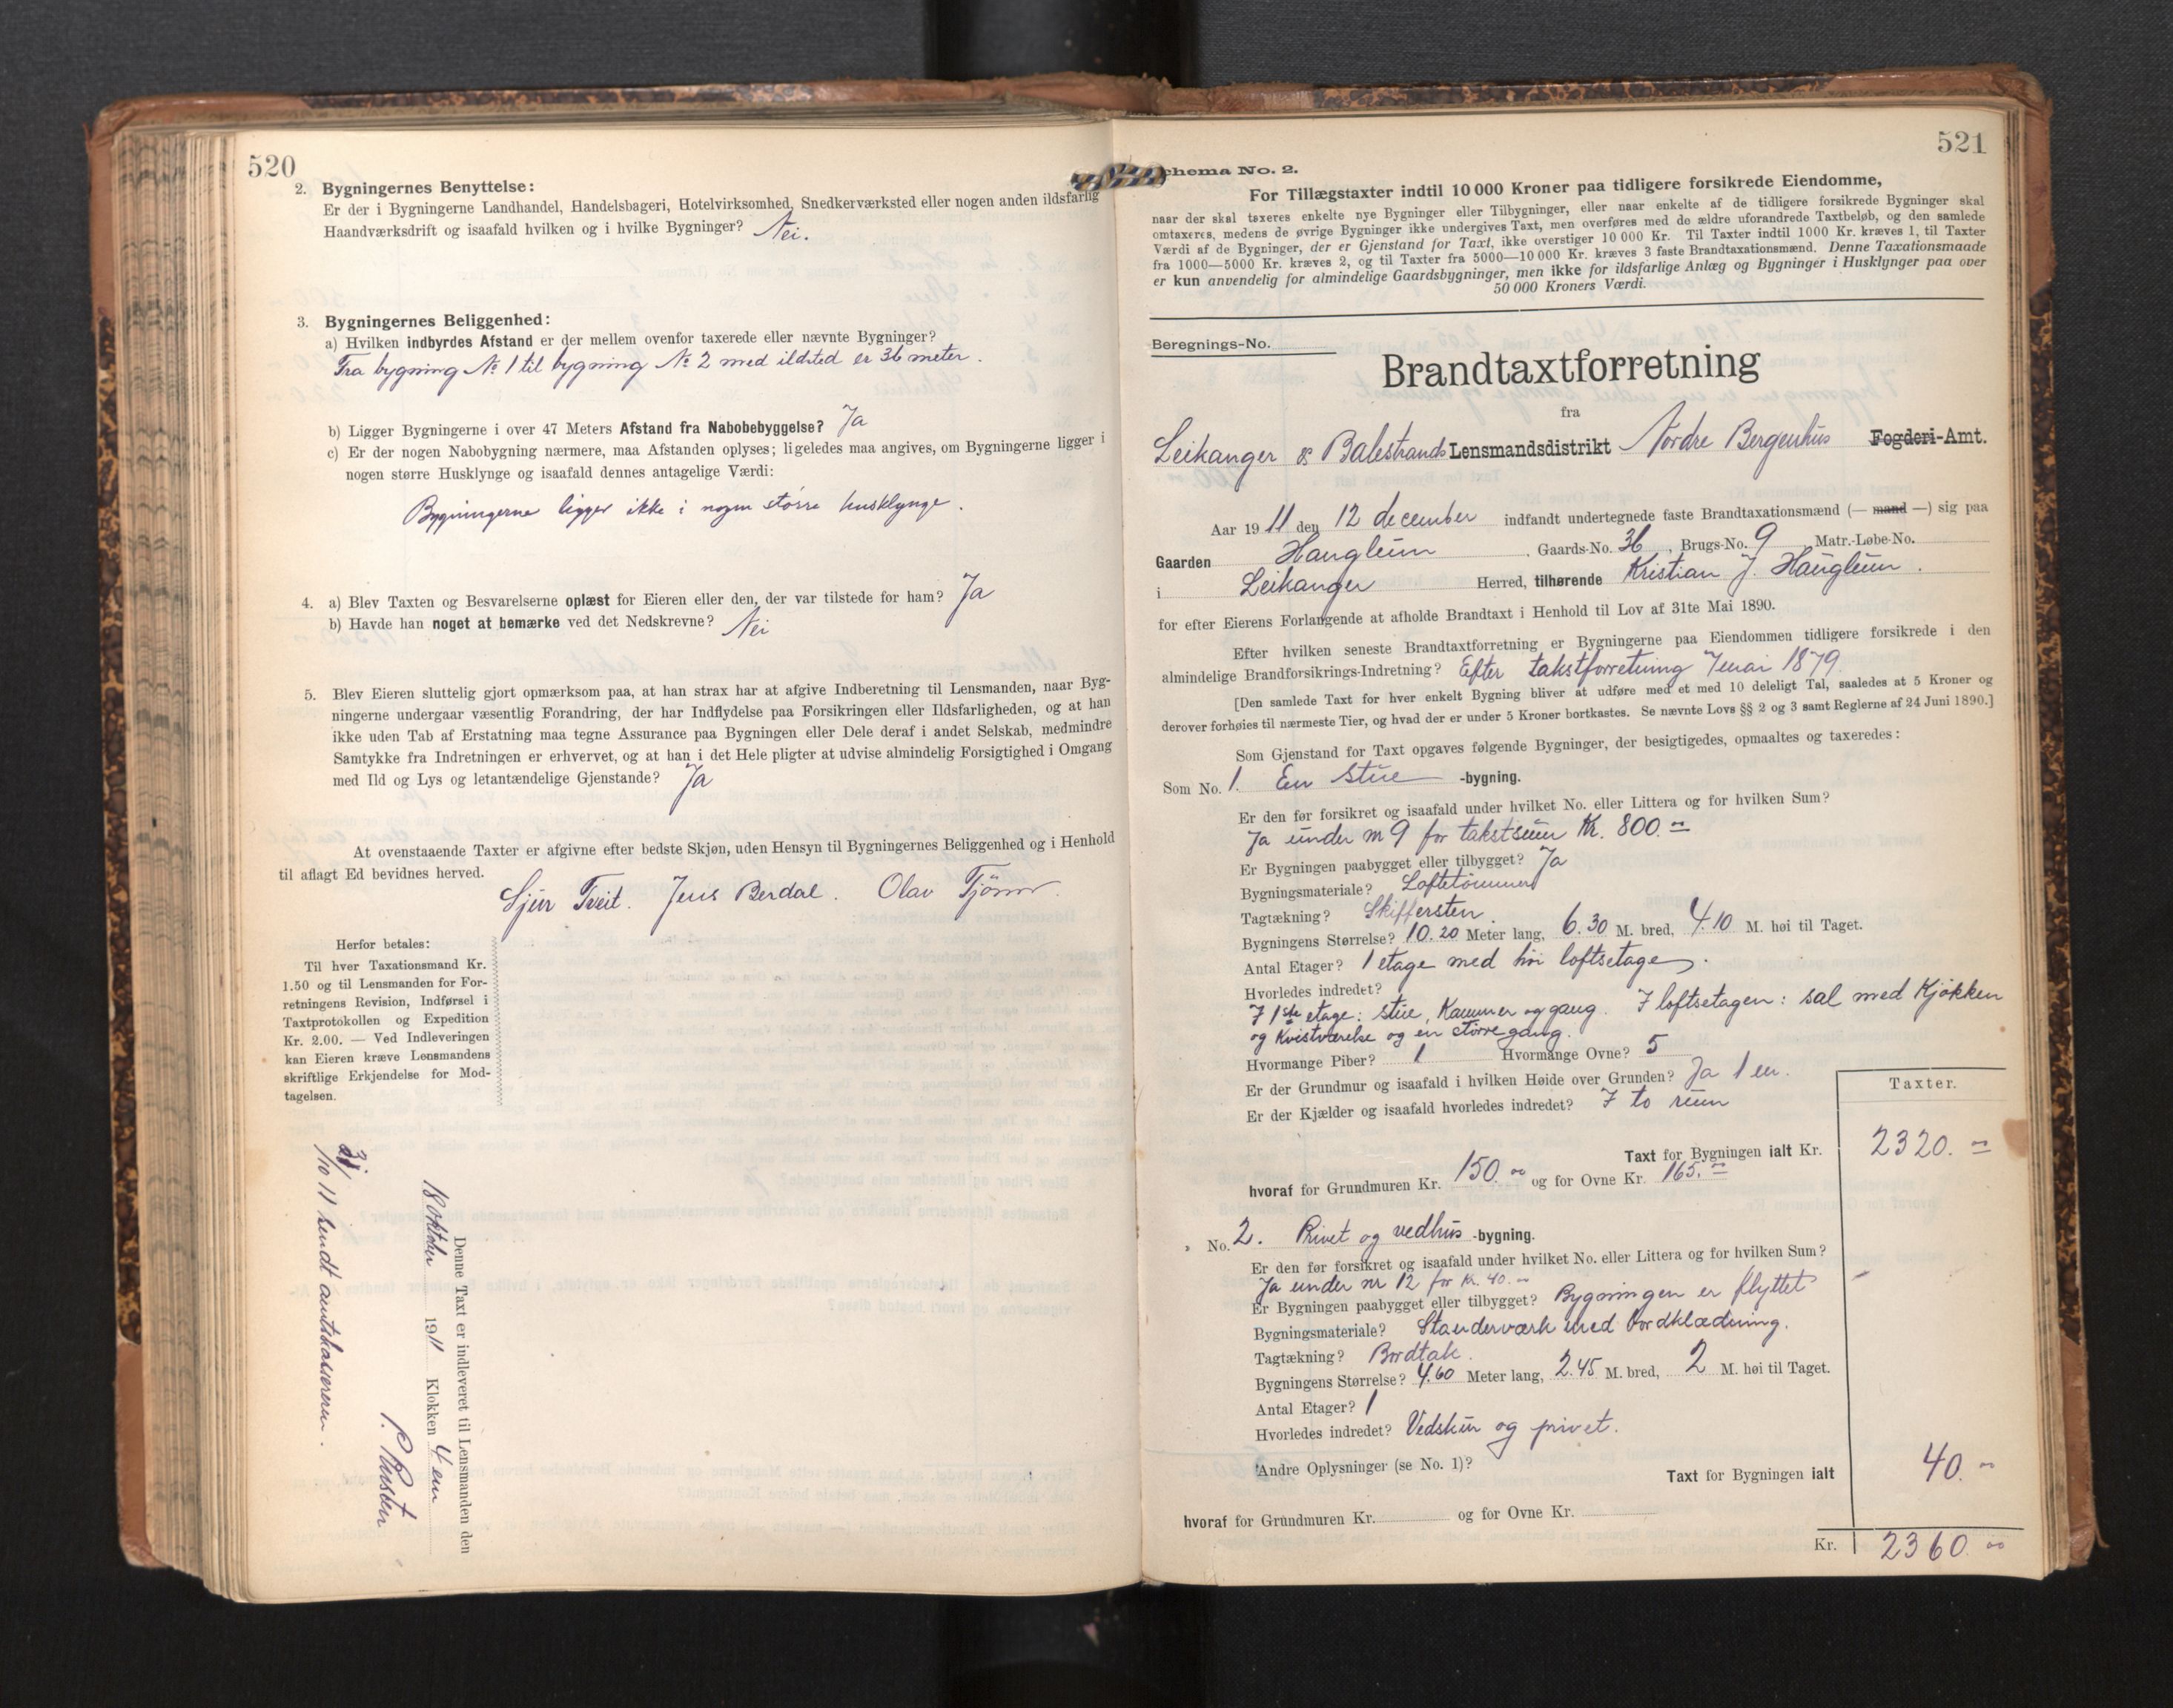 520
2. Bygningernes Benyttelse:
Er der i Bygningerne Landhandel, Handelsbageri, Hotelvirksomhed, Snedkerværksted eller nogen anden ildsfarlig
Haandværksdrift og isaafald hvilken og i hvilke Bygninger? Nei.
3. Bygningernes Beliggenhed:
a) Hvilken indbyrdes Afstand er der mellem ovenfor taxerede eller nævnte Bygninger?
Fra bygning № 1 til bygning № 2 med ildsted er 36 meter.
b) Ligger Bygningerne i over 47 Meters Afstand fra Nabobebyggelse? Ja
c) Er der nogen Nabobygning nærmere, maa Afstanden oplyses; ligeledes maa angives, om Bygningerne ligger i
nogen større Husklynge og isaafald dennes antagelige Værdi:
Bygningerne ligger ikke i nogen større husklynge.
4. a) Blev Taxten og Besvarelserne oplæst for Eieren eller den, der var tilstede for ham? Ja
b) Havde han noget at bemærke ved det Nedskrevne? Nei
5. Blev Eieren sluttelig gjort opmærksom paa, at han strax har at afgive Indberetning til Lensmanden, naar Byg-
ningerne undergaar væsentlig Forandring, der har Indflydelse paa Forsikringen eller Ildsfarligheden, og at han
ikke uden Tab af Erstatning maa tegne Assurance paa Bygningen eller Dele deraf i andet Selskab, medmindre
Samtykke fra Indretningen er erhvervet, og at han i det Hele pligter at udvise almindelig Forsigtighed i Omgang
med Ild og Lys og letantændelige Gjenstande? Ja
At ovenstaaende Taxter er afgivne efter bedste Skjøn, uden Hensyn til Bygningernes Beliggenhed og i Henhold
til aflagt Ed bevidnes herved.
Sjur Tveit. Jens Berdal. Olav Tjönn
Herfor betales:
Til hver Taxationsmand Kr.
1.50 og til Lensmanden for For-
retningens Revision, Indførsel i
Taxtprotokollen og Expedition
Kr. 2.00. — Ved Indleveringen
kan Eieren kræve Lensmandens
skriftlige Erkjendelse for Mod-
tagelsen.
Denne Taxt er indleveret til Lensmanden den
18 oktober 1911 Klokken 4 em
/10 11 sendt amtskassereren.
521
chema No. 2.
For Tillægstaxter indtil 10 000 Kroner paa tidligere forsikrede Eiendomme,
naar der skal taxeres enkelte nye Bygninger eller Tilbygninger, eller naar enkelte af de tidligere forsikrede Bygninger skal
omtaxeres, medens de øvrige Bygninger ikke undergives Taxt, men overføres med de ældre uforandrede Taxtbeløb, og den samlede
Værdi af de Bygninger, der er Gjenstand for Taxt, ikke overstiger 10 000 Kr. Til Taxter indtil 1000 Kr. kræves 1, til Taxter
fra 1000—5000 Kr. kræves 2, og til Taxter fra 5000—10 000 Kr. kræves 3 faste Brandtaxationsmænd. Denne Taxationsmaade
er kun anvendelig for almindelige Gaardsbygninger, men ikke for ildsfarlige Anlæg og Bygninger i Husklynger paa over
50 000 Kroners Værdi.
Beregnings-No.
Brandtaxtforretning
fra
Leikanger & Balestrands Lensmandsdistrikt Nordre Bergenhus Fogderi-Amt.
Aar 1911 den 12 december indfandt undertegnede faste Brandtaxationsmænd (— mand —) sig paa
Gaarden Hauglum, Gaards-No. 36, Brugs-No. 9, Matr.-Løbe-No.
i Leikanger Herred, tilhørende Kristian J. Hauglum.
for efter Eierens Forlangende at afholde Brandtaxt i Henhold til Lov af 31te Mai 1890.
Efter hvilken seneste Brandtaxtforretning er Bygningerne paa Eiendommen tidligere forsikrede i den
almindelige Brandforsikrings-Indretning? Efter takstforretning 7 mai 1879.
[Den samlede Taxt for hver enkelt Bygning bliver at udføre med et med 10 deleligt Tal, saaledes at 5 Kroner og
derover forhøies til nærmeste Tier, og hvad der er under 5 Kroner bortkastes. Se nævnte Lovs §§ 2 og 3 samt Reglerne af 24 Juni 1890.]
Som Gjenstand for Taxt opgaves følgende Bygninger, der besigtigedes, opmaaltes og taxeredes:
Som No. 1. En Stue -bygning.
Er den før forsikret og isaafald under hvilket No. eller Littera og for hvilken Sum?
Ja under nr 9 for takstsum Kr. 800.
Er Bygningen paabygget eller tilbygget? Ja
Bygningsmateriale? Loftetömmer
Tagtækning? Skiffersten.
Bygningens Størrelse? 10.20 Meter lang, 6.30 M. bred, 4.10 M. høi til Taget.
Antal Etager? 1 etage med höi loftsetage.
Hvorledes indredet?
I 1ste etage: stue, Kammer og gang. I loftsetagen: sal med Kjökken
og Kvistværelse og en större gang.
Hvormange Piber? 1 Hvormange Ovne? 5
Er der Grundmur og isaafald i hvilken Høide over Grunden? Ja 1 m.
Er der Kjælder og isaafald hvorledes indredet? I to rum
Taxter.
Taxt for Bygningen ialt Kr. 2320.
hvoraf for Grundmuren Kr. 150.00 og for Ovne Kr. 165.
No. 2. Privet og vedhus -bygning.
Er den før forsikret og isaafald under hvilket No. eller Littera og for hvilken Sum?
Ja under nr 12 for Kr. 40.
Er Bygningen paabygget eller tilbygget? Bygningen er flyttet
Bygningsmateriale? Standerværk med bordklædning.
Tagtækning? Bordtak.
Bygningens Størrelse? 4.60 Meter lang, 2.45 M. bred, 2 M. høi til Taget.
Antal Etager? 1
Hvorledes indredet? Vedskur og privet.
Andre Oplysninger (se No. 1)?
Taxt for Bygningen ialt 40.
hvoraf for Grundmuren Kr. og for Ovne Kr.
Kr. 2360.00